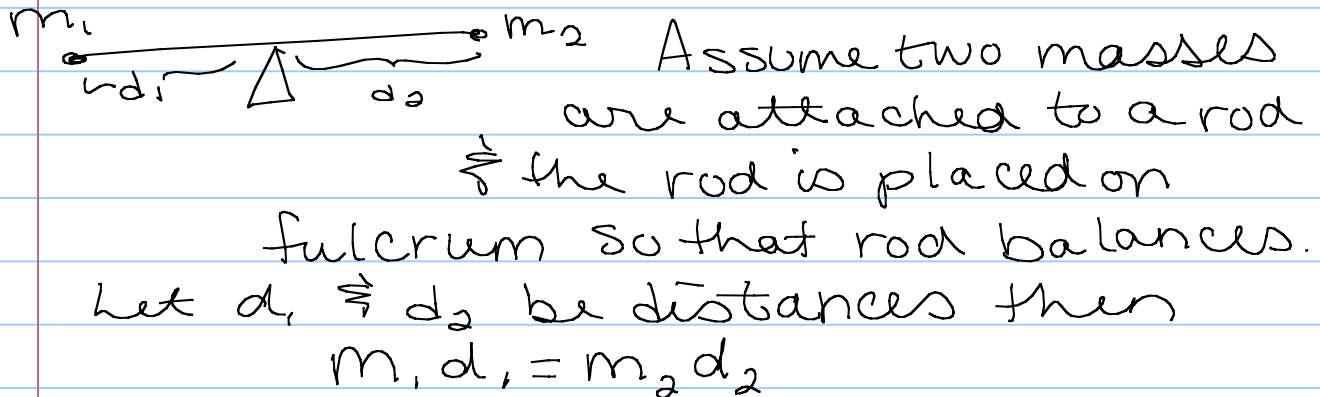 m₁ m₂ Assume two masses
d₁ d₂ are attached to a rod
& the rod is placed on
fulcrum so that rod balances.
Let d₁ & d₂ be distances then
m₁d₁ = m₂d₂